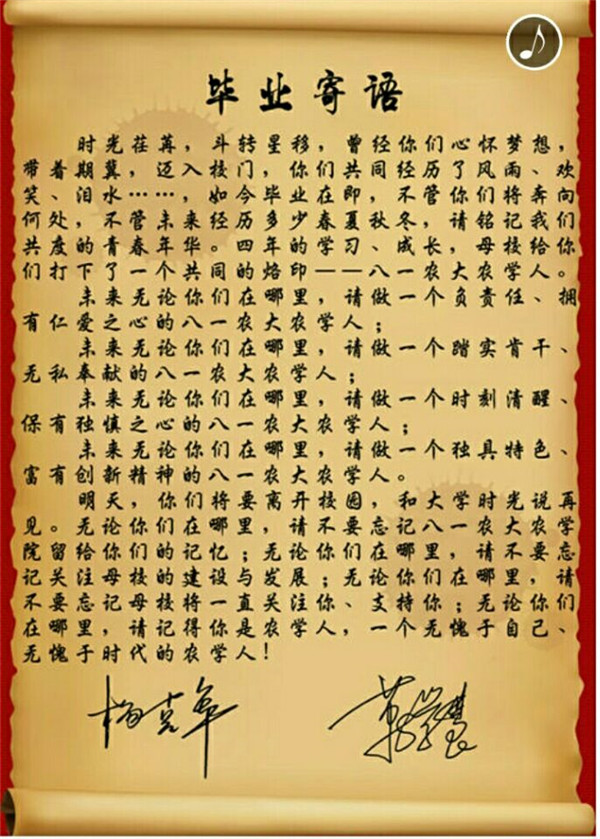 毕业寄语
时光荏苒，斗转星移，曾经你们心怀梦想，
带着期冀，迈入校门，你们共同经历了风雨、欢
笑、泪水……，如今毕业在即，不管你们将奔向
何处，不管未来经历多少春夏秋冬，请铭记我们
共度的青春年华。四年的学习、成长，母校给你
们打下了一个共同的烙印——八一农大农学人。
未来无论你们在哪里，请做一个负责任、拥
有仁爱之心的八一农大农学人；
未来无论你们在哪里，请做一个踏实肯干、
无私奉献的八一农大农学人；
未来无论你们在哪里，请做一个时刻清醒、
保有独慎之心的八一农大农学人；
未来无论你们在哪里，请做一个独具特色、
富有创新精神的八一农大农学人。
明天，你们将要离开校园，和大学时光说再
见。无论你们在哪里，请不要忘记八一农大农学
院留给你们的记忆；无论你们在哪里，请不要忘
记关注母校的建设与发展；无论你们在哪里，请
不要忘记母校将一直关注你、支持你；无论你们
在哪里，请记得你是农学人，一个无愧于自己、
无愧于时代的农学人！